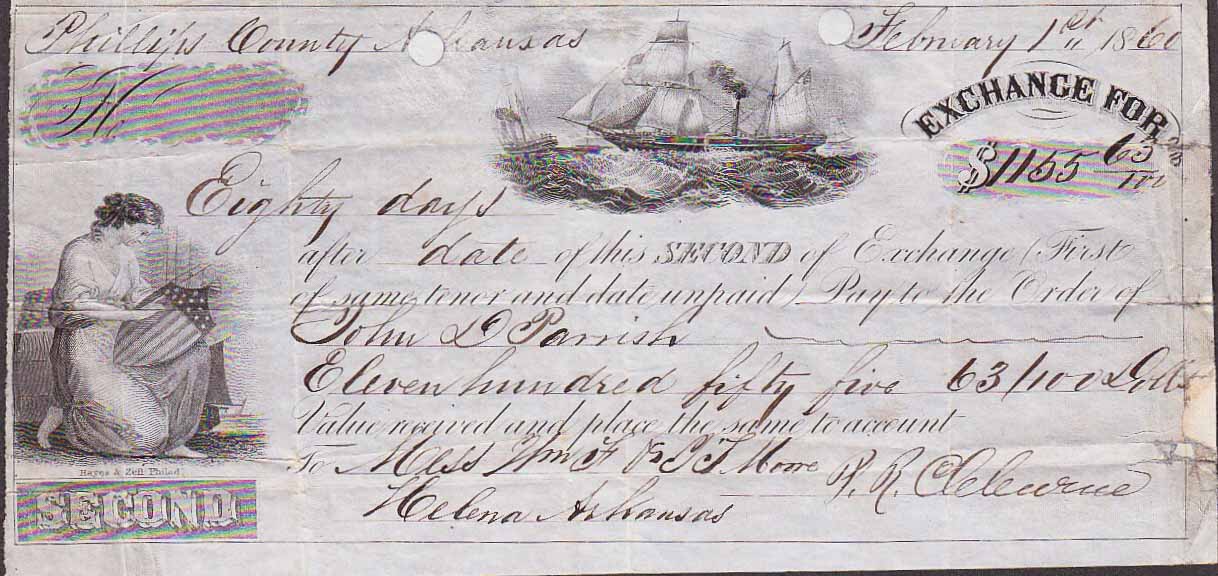 Phillips County Arkansas
February 1st 1860
No
EXCHANGE FOR
$1155 63/100
Eighty days
after date of this SECOND of Exchange (First
of same tenor and date unpaid) Pay to the Order of
John D Parrish
Eleven hundred fifty five 63/100 Dolls
Value received and place the same to account
To Mess Wm F & T Moore P. R. Cleburne
Helena Arkansas
Hayes & Zell Philad
SECOND